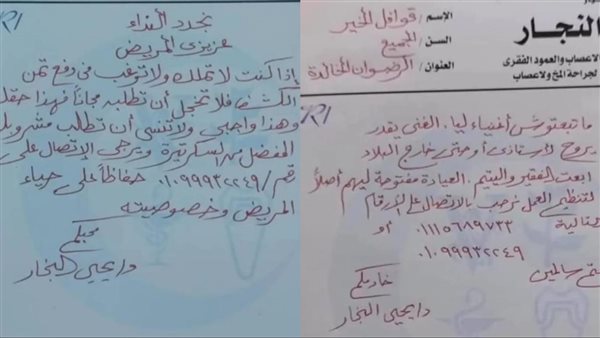 نجدد النداء
عزيزى المريض
إذا كنت لا تملك ولا ترغب فى دفع ثمن
الكشف فلا تخجل أن تطلبه مجاناً فهذا حقك
وهذا واجبى ولا تنسى أن تطلب مشروبك
المفضل من السكرتيرة ويرجى الإتصال على
رقم / ٠١٠٩٩٩٣٢٢٤٩ حفاظاً على حياء
المريض وخصوصيته
محبكم
د/يحيى النجار
الإسم / قوافل الخير
السن / الجميع
العنوان / الرضوان الخالدة
النجار
الاعصاب والعمود الفقرى
لجراحة المخ والاعصاب
ما تبعتوش أغنياء ليا. الغنى يقدر
يروح لأستاذى أو حتى خارج البلاد
ابعت الفقير واليتيم. العيادة مفتوحة ليهم أصلاً
لتنظيم العمل نرحب بالاتصال على الأرقام
التالية ٠١١١٥٦٨٩٧٣٣ أو
٠١٠٩٩٩٣٢٢٤٩
سالمين
خادمكم
د/يحيى النجار